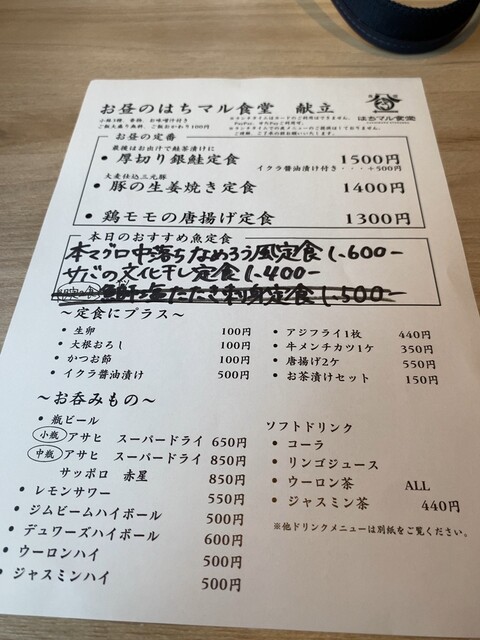 お昼のはちマル食堂 献立
小鉢3種、香物、お味噌汁付き
ご飯大盛り無料、ご飯おかわり100円
※ランチタイムはカードのご利用はできません。
PayPay、
はちマル食堂
お昼の定番
最後はお出汁で鮭茶漬けに
• 厚切り銀鮭定食 1500円
イクラ醤油漬け付き・・・+500円
大麦仕込三元豚
• 豚の生姜焼き定食 1400円
• 鶏モモの唐揚げ定食 1300円
本日のおすすめ魚定食
本マグロ中落ちなめろう風定食 1,600-
サバの文化干し定食 1,400-
たたき刺身定食 1,500-
〜定食にプラス〜
• 生卵 100円
• 大根おろし 100円
• かつお節 100円
• イクラ醤油漬け 500円
• アジフライ1枚 440円
• 牛メンチカツ1ケ 350円
• 唐揚げ2ケ 550円
• お茶漬けセット 150円
〜お呑みもの〜
• 瓶ビール
小瓶 アサヒ スーパードライ 650円
中瓶 アサヒ スーパードライ 850円
サッポロ 赤星 850円
• レモンサワー 550円
• ジムビームハイボール 500円
• デュワーズハイボール 600円
• ウーロンハイ 500円
• ジャスミンハイ 500円
ソフトドリンク
• コーラ
• リンゴジュース
• ウーロン茶 ALL
• ジャスミン茶 440円
※他ドリンクメニューは別紙をご覧ください。